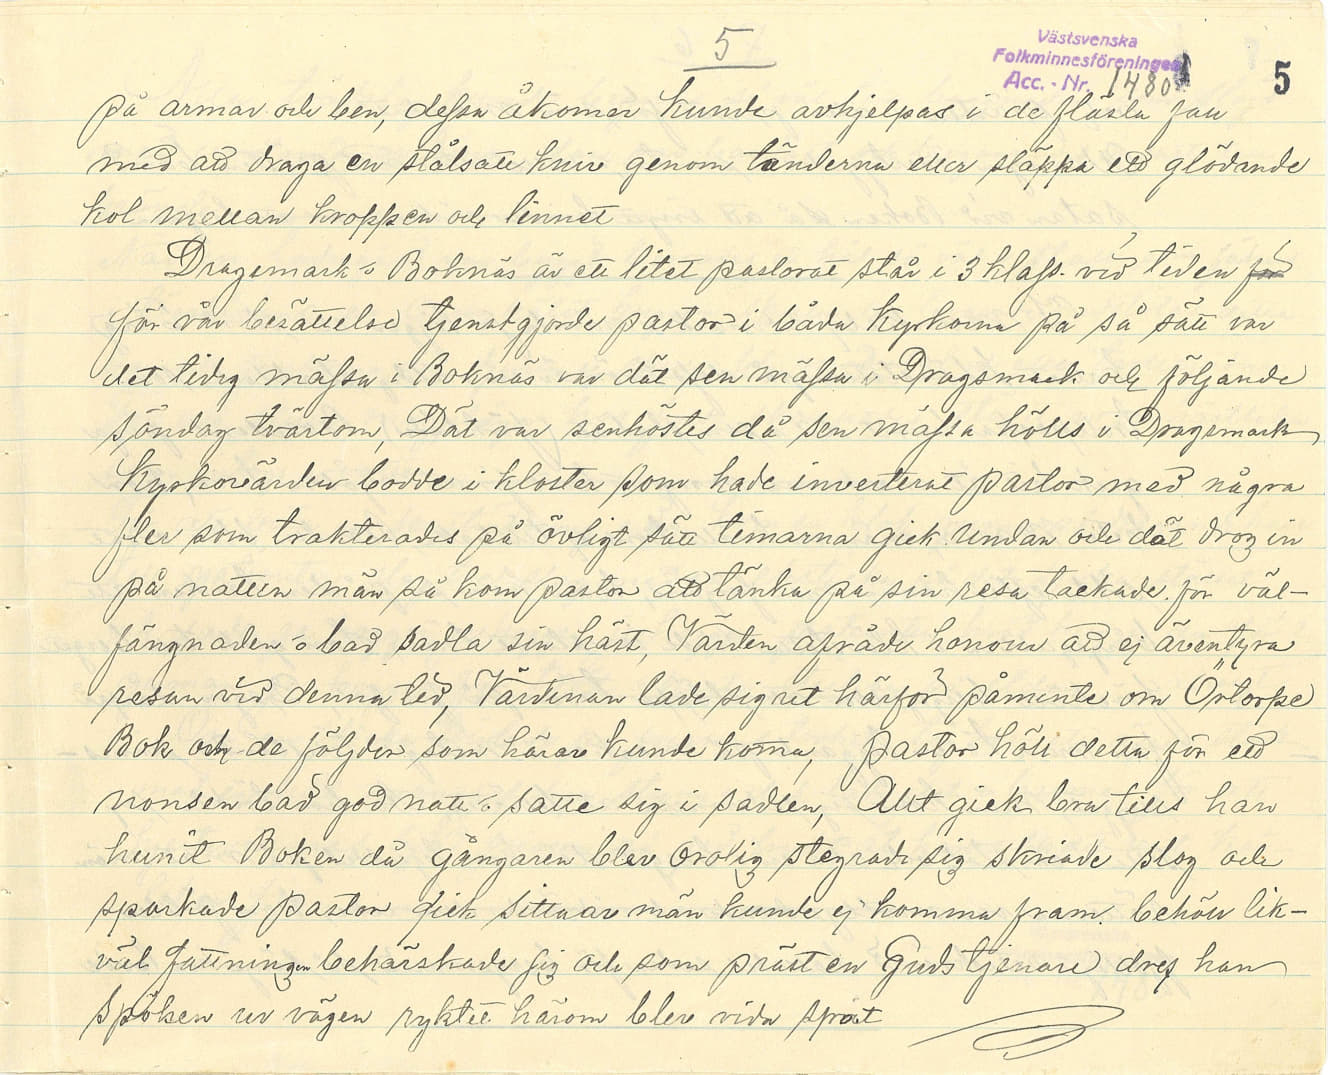 5
Västsvenska
Folkminnesföreningen
Acc. - Nr. 1480
5
på armar och ben, dessa åkomer kunde avhjelpas i de flästa fall
med att draga en stålsatt kniv genom tänderna eller släppa ett glödande
kol mellan kroppen och linnet
Dragsmark o Boknäs är ett litet pastorat står i 3 klass. vid tiden
för vår besättelse tjenstgjorde pastor i båda kyrkorna på så sätt var
det tidig mässa i Boknäs var dät sen mässa i Dragsmark och följande
söndag tvärtom, Dät var senhöstes då sen mässa hölls i Dragsmark
Kyrkovärden bodde i kloster som hade inverterat pastor med några
fler som trakterades på övligt sätt timarna gick undan och dät drog in
på natten män så kom pastor att tänka på sin resa tackade för väl-
fängnaden o bad sadla sin häst, Värden afrådde honom att ej äventyra
resan vid denna tid, Värdinan lade sig ret härför påminte om Östorps
Bok och de följder som härav kunde koma, pastor höll detta för ett
nonsen bad god natt o satte sig i sadlen, Allt gick bra tills han
hunit Boken då gångaren blev orolig stegrade sig skriade slog och
sparkade pastor gick sittaav män kunde ej komma fram. behöll lik-
väl fattningen behärskade sig och som präst en Guds tjenare dref han
Spöken ur vägen ryktet härom blev vida spröt